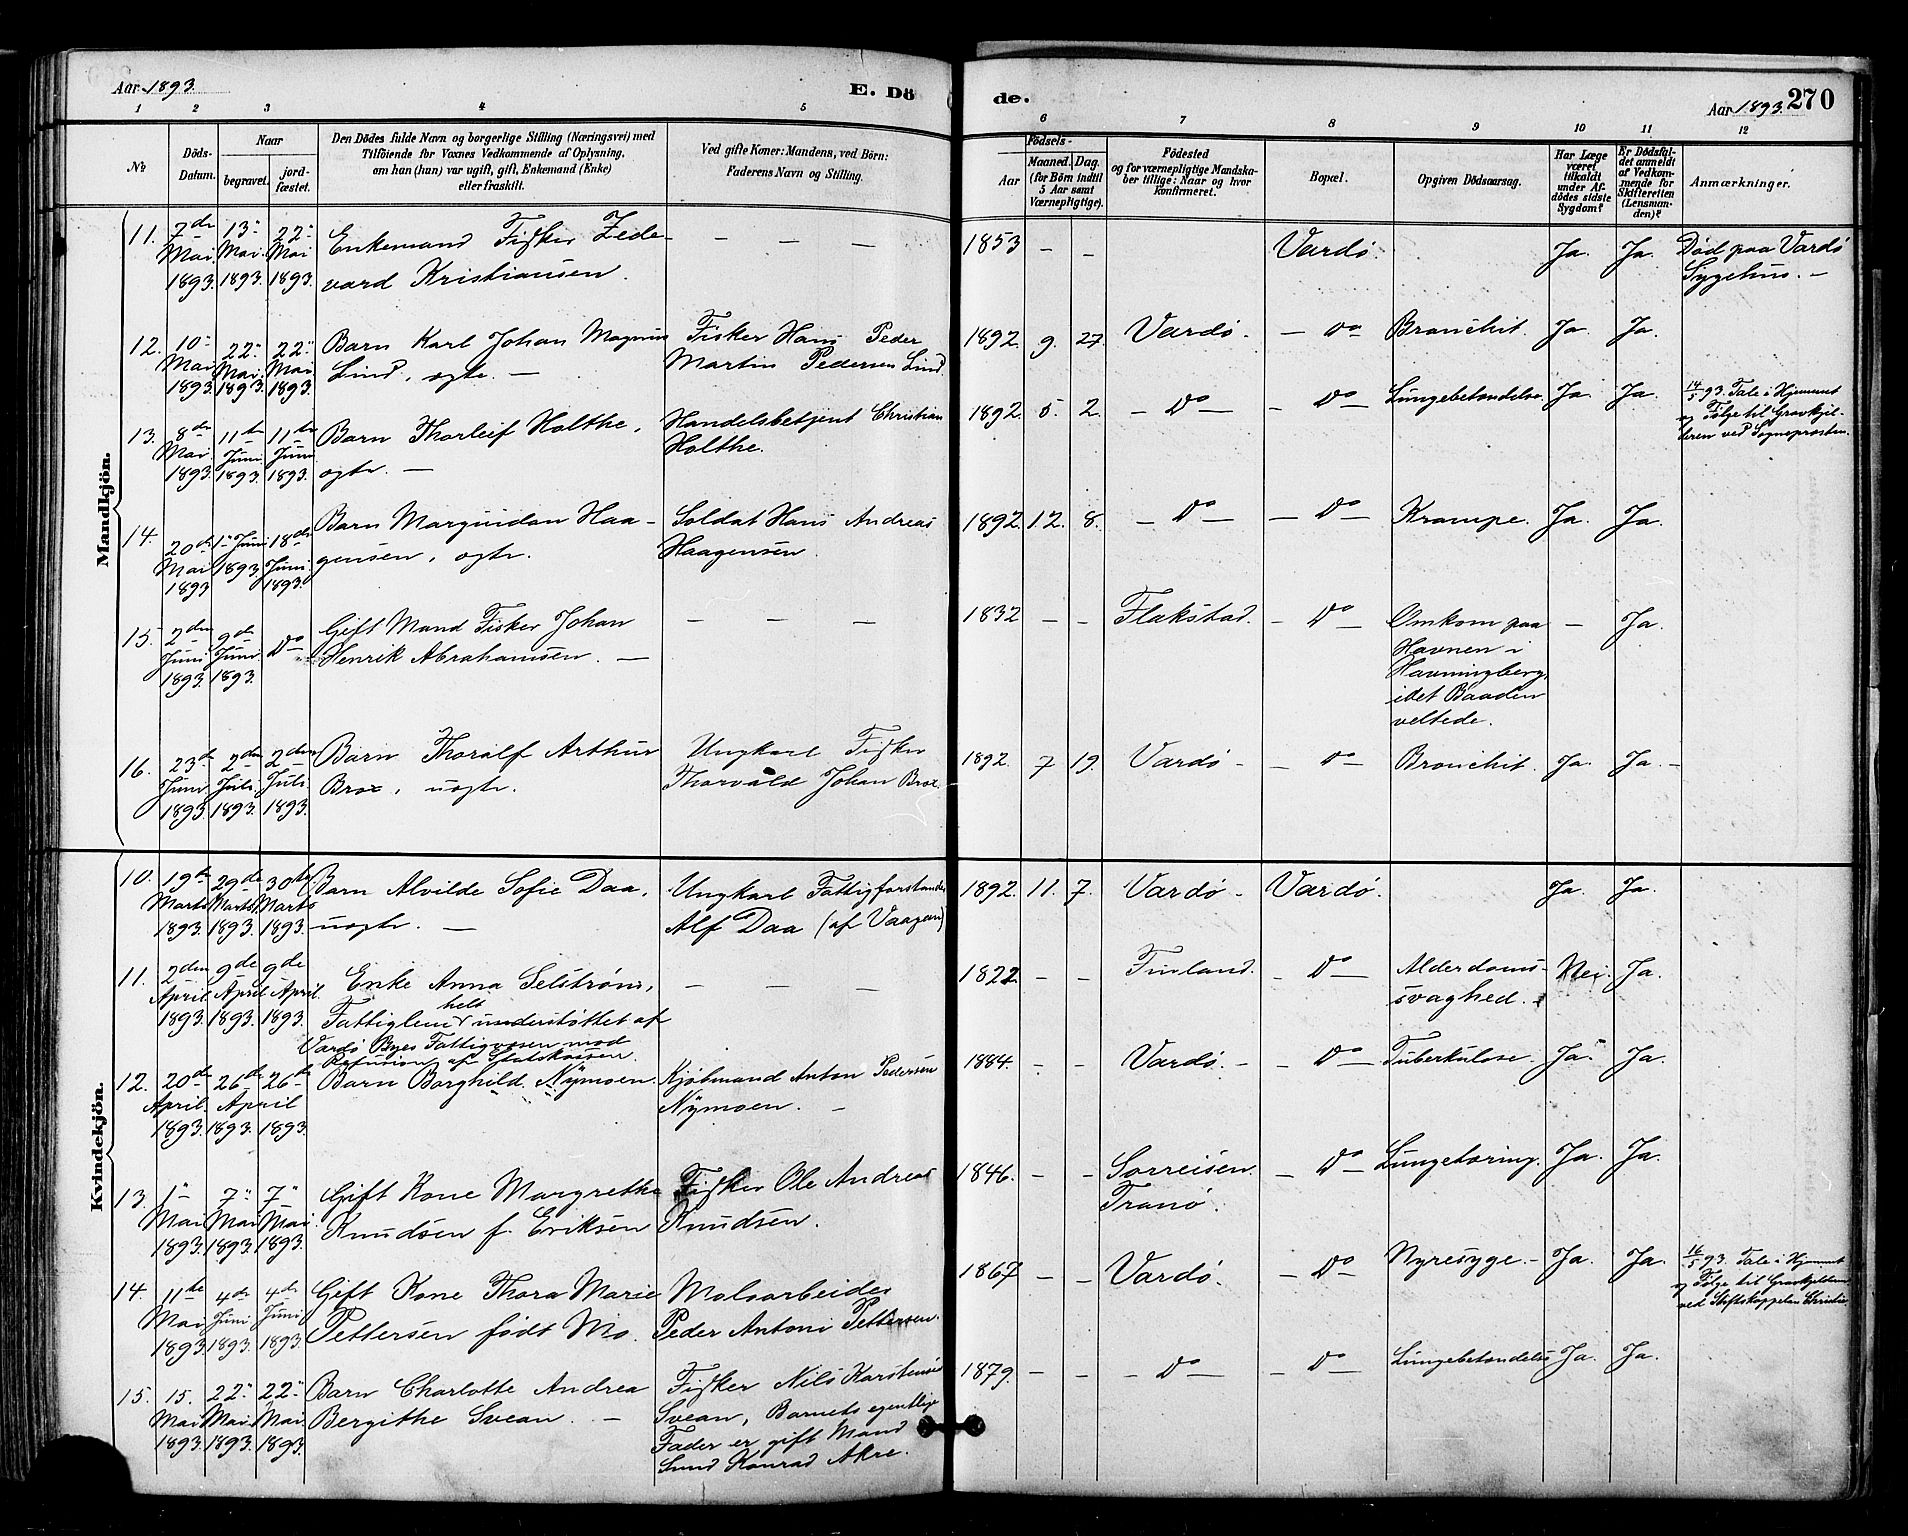 Aar 1893.
E. Dö
de.
Aar 1893.
270
1 2 3 4 5 6 7 8 9 10 11 12
No
Döds-
Datum.
Naar
begravet.
jord-
fæstet.
Den Dödes fulde Navn og borgerlige Stilling (Næringsvei) med
Tilföiende for Voxnes Vedkommende af Oplysning,
om han (hun) var ugift, gift, Enkemand (Enke)
eller fraskilt.
Ved gifte Koner: Mandens, ved Börn:
Faderens Navn og Stilling.
Födsels-
Aar
Maaned. Dag.
(for Börn indtil
5 Aar samt
Værnepligtige).
Födested
og for værnepligtige Mandska-
ber tillige: Naar og hvor
konfirmeret.
Bopæl.
Opgiven Dödsaarsag.
Har Læge
været
tilkaldt
under Af-
dödes sidste
Sygdom?
Er Dödsfal-
det anmeldt
af Vedkom-
mende for
Skifteretten
(Lensman-
den)?
Anmærkninger.
Mandkjön.
11. 7de Mai 1893. 13" Mai 1893. 22" Mai 1893. Enkemand Fisker Zede-
vard Kristiansen.
— — —
1853 — — Vardø. Ja. Ja. Død paa Vardø
Sygehus. —
12. 10" Mai 1893 22" Mai 1893 22" Mai 1893 Barn Karl Johan Magnus
Lind, ægte. —
Fisker Hans Peder
Martin Pedersen Lind.
1892. 9. 27. Vardø. — Do Bronchit. Ja. Ja.
13. 8de Mai 1893 11te Juni 1893 11te Juni 1893. Barn Thorleif Holthe,
ægte. —
Handelsbetjent Christian
Holthe.
1892. 5. 2. — Do — — Do — Lungebetændelse. Ja. Ja. 14/5 93. Tale i Hjemmet
og Følge til Gravkjel-
deren ved Sogneprosten.
14. 20de Mai 1893 1" Juni 1893. 18de Juni 1893. Barn Marquidan Haa-
gensen, ægte.
Soldat Hans Andreas
Haagensen.
1892. 12. 8. — Do — — Do — Krampe. Ja. Ja.
15. 2den Juni 1893. 9de Juni 1893. Do Gift Mand Fisker Johan
Henrik Abrahamsen. —
— — —
1832 — — Flakstad. — Do — Omkom paa
Havnen i
Havningberg,
idet Baaden
veltede.
— Ja.
16. 23de Juni 1893. 2den Juli 1893. 2den Juli 1893. Barn Thoralf Arthur
Brox, uægte.
Ungkarl Fisker
Thorvald Johan Brox.
1892. 7 19. Vardø — — Do — Bronchit. Ja. Ja. —
Kvindekjön.
10. 19de Marts 1893. 29de Marts 1893. 30de Marts 1893. Barn Alvilde Sofie Daa,
uægte. —
Ungkarl Fattigforstander
Alf Daa (af Vaagan)
1892. 11. 7. Vardø — Vardø. Ja. Ja.
11. 2den April 1893. 9de April 1893. 9de April 1893. Enke Anna Selstrøm,
Fattiglem helt understøttet af
Vardø Byes Fattigvæsen mod
Refusion af Statskassen.
— — —
1822 — — Finland. — Do — Alderdoms-
svaghed.
Nei. Ja.
12. 20de April 1893. 26de April 1893. 26de 1893. Barn Borghild Nymoen. Kjøbmand Anton Pedersen
Nymoen. —
1884. — — Vardø. — — Do — Tuberkulose. Ja. Ja.
13. 1" Mai 1893. 7" Mai 1893. 7" Mai 1893. Gift Kone Margrethe
Knudsen f. Eriksen
Fisker Ole Andreas
Knudsen.
1846. — — Sorreisen
Tranø.
— Do — Lungetæring. Ja. Ja.
14. 11te Mai 1893. 4de Juni 1893. 4de Juni 1893. Gift Kone Thora Marie
Pettersen født Mo.
Moloarbeider
Peder Antoni Pettersen.
1867 — — Vardø. — Do — Nyresyge. — Ja. Ja. 16/5 93. Tale i Hjemmet
og Følge til Gravkjelderen
ved Stiftskappelan Christie
15. 15. Mai 1893. 22" Mai 1893. 22" Mai 1893. Barn Charlotte Andrea
Bergithe Svean. —
Fisker Nils Karstensen
Svean, Barnets egentlige
Fader er gift Mand
Sund Konrad Akre.
1879. — — — Do — — Do — Lungebetændelse Ja. Ja.